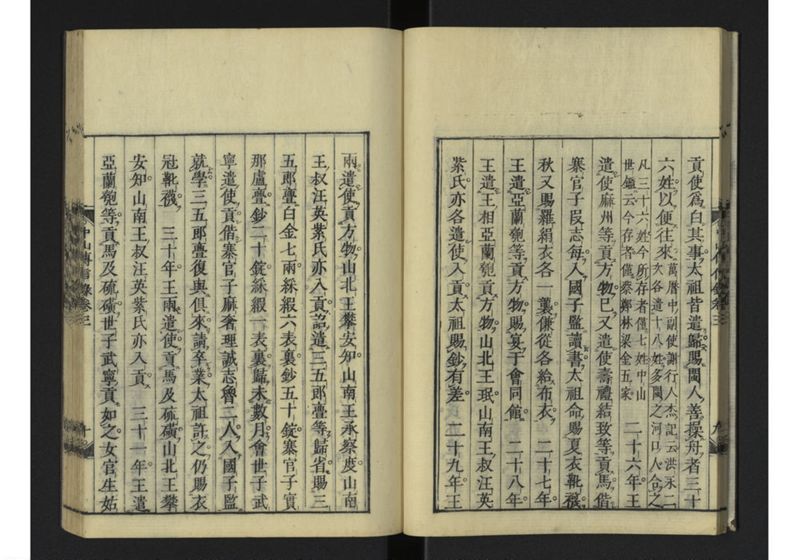 貢使爲白其事太祖皆遣歸賜閩人善操舟者三十
六姓以便往來萬曆中副使謝行人杰記云洪永二
次各遣十八姓多閩之河口人合之
凡三十六姓今所存者僅七姓中山
世鑑云今存者僅蔡鄭林梁金五家二十六年王
遣使麻州等貢方物已又遣使壽禮結致等貢馬偕
寨官子段志每入國子監讀書太祖命賜夏衣靴襪
秋又賜羅絹衣各一襲傔從各給布衣二十七年
王遣亞蘭匏等貢方物賜宴于會同館二十八年
王遣王相亞蘭匏貢方物山北王珉山南王叔汪英
紫氏亦各遣使入貢太祖賜鈔有差二十九年王
中山傳信錄卷三
九
兩遣使貢方物山北王攀安知山南王承察度山南
王叔汪英紫氏亦入貢詔遣三五郎亹等歸省賜三
五郎亹白金七兩綵緞六表裏鈔五十錠寨官子實
那盧亹鈔二十錠綵緞一表裏歸未數月會世子武
寧遣使貢偕寨官子麻奢理誠志魯二人入國子監
就學三五郎亹復與俱來請卒業太祖許之仍賜衣
冠靴襪三十年王兩遣使貢馬及硫磺山北王攀
安知山南王叔汪英紫氏亦入貢三十一年王遣
亞蘭匏等貢馬及硫磺世子武寧貢如之女官生姑
中山傳信錄卷三
十